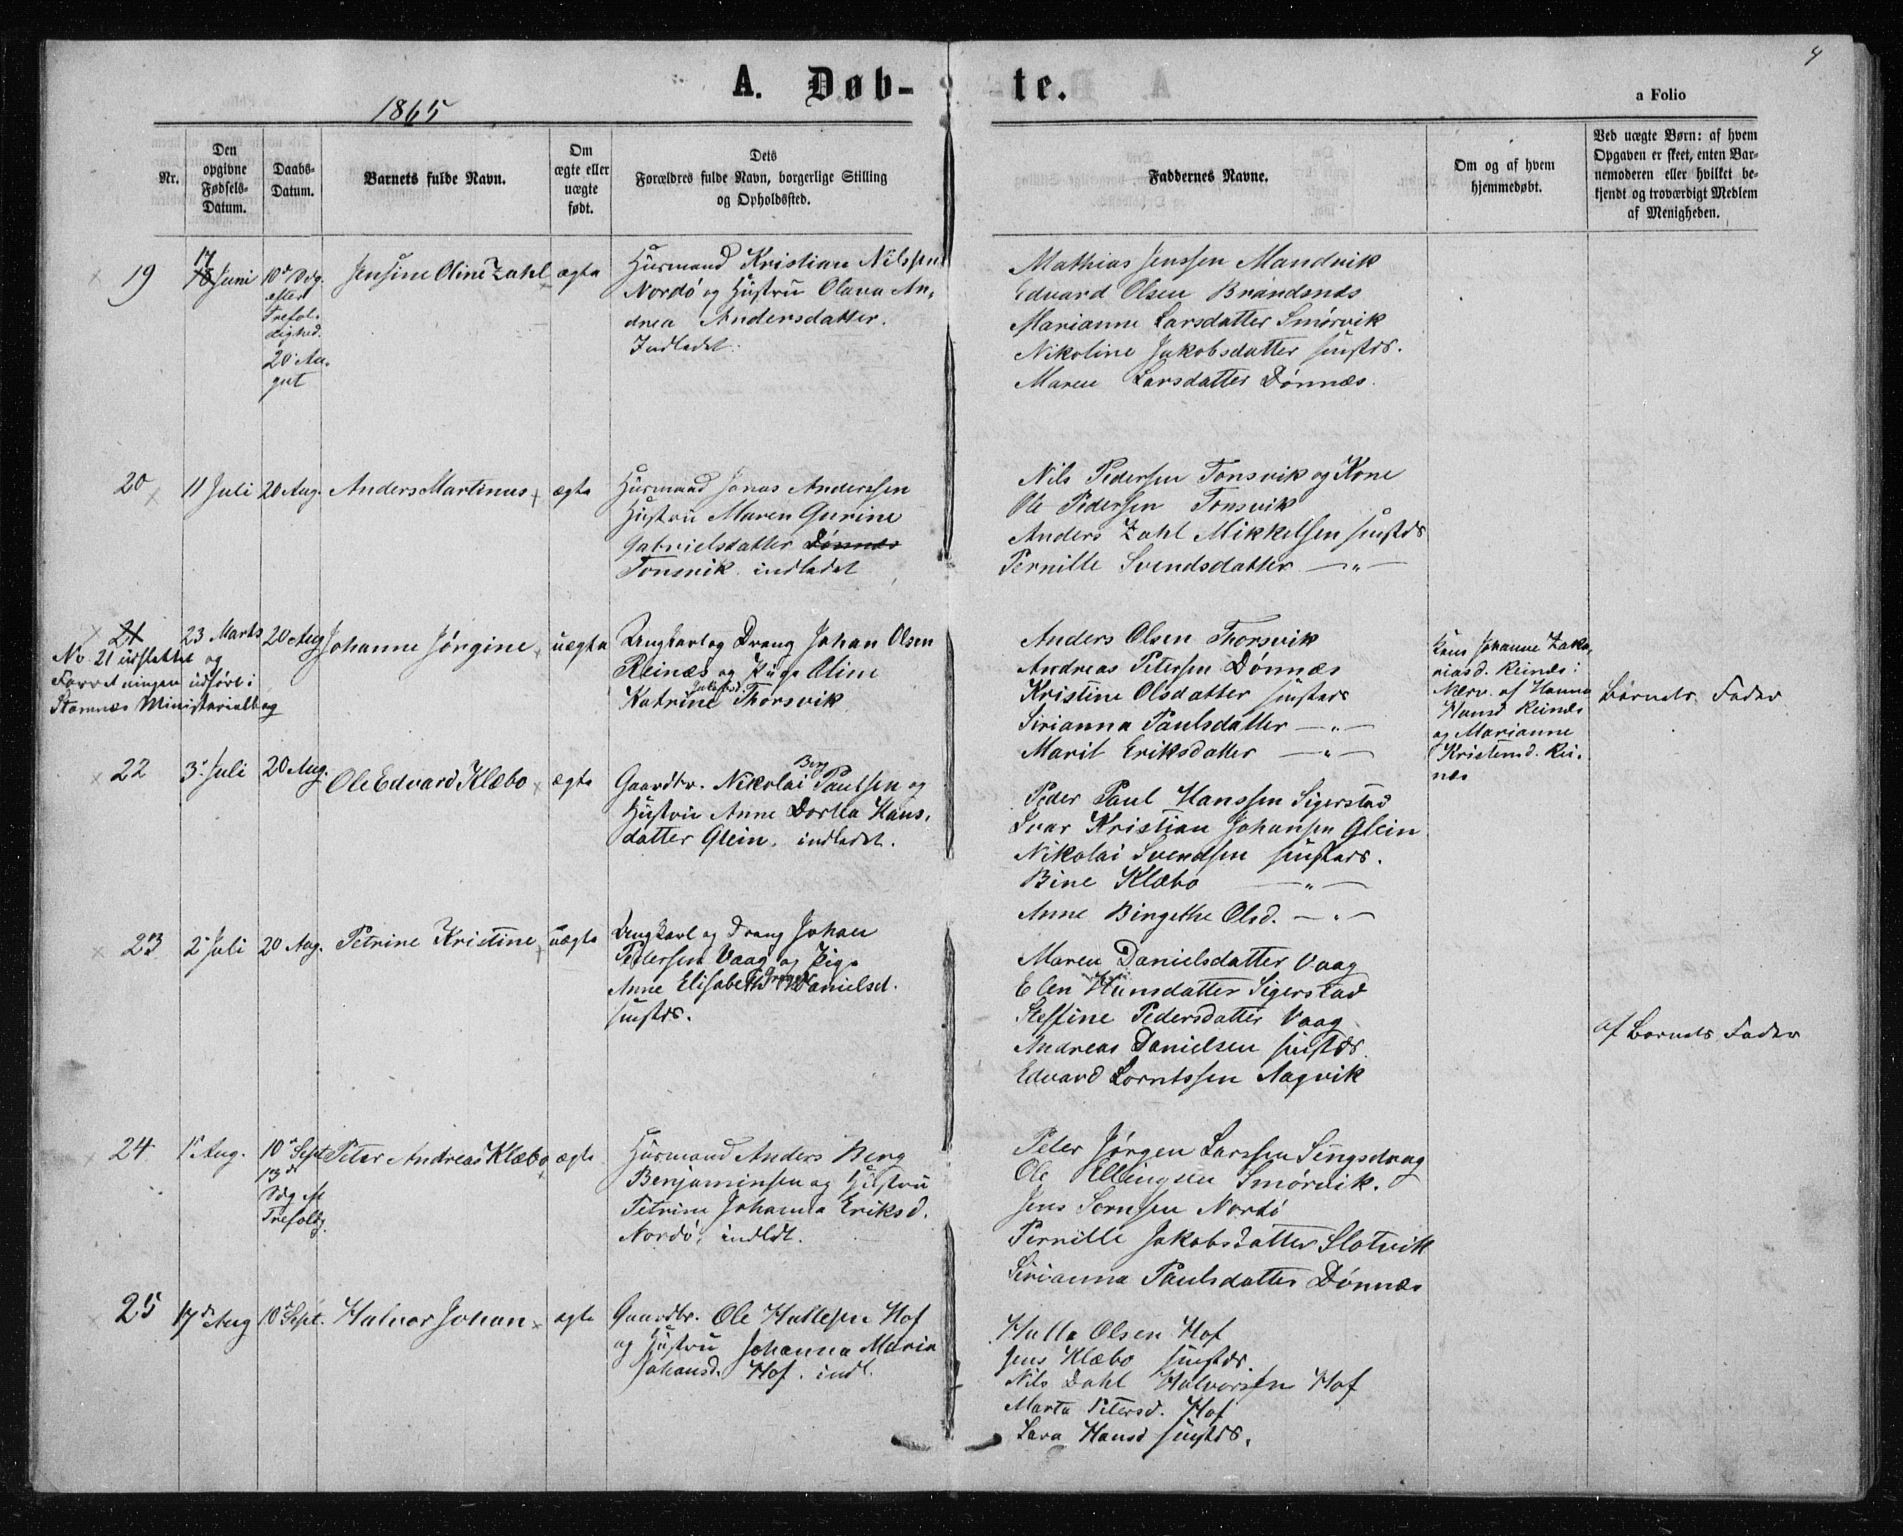 4
A. Døb- te.
a Folio
1865
Nr.
Den opgivne Fødsels-Datum.
Daabs-Datum.
Barnets fulde Navn.
Om ægte eller uægte født.
Dets Forældres fulde Navn, borgerlige Stilling og Opholdssted.
Faddernes Navne.
Om og af hvem hjemmedøbt.
Ved uægte Børn: af hvem Opgaven er skeet, enten Barnemoderen eller hvilket bekjendt og troværdigt Medlem af Menigheden.
19
17 Juni
10de Sdg.
efter
Trefol-
dighed.
20 Au-
gut
Jensine Oline Zahl
ægte
Huusmand Kristian Nilssen
Nordø og Hustru Olava An-
drea Andersdatter.
Indladet.
Mathias Jenssen Mandvik
Edvard Olsen Brandsnes
Marianne Larsdatter Smørvik
Nikoline Jakobsdatter sammestds.
Maren Larsdatter Dønnæs.
20
11 Juli
20 Aug.
Anders Martinus
ægte
Huusmand Jonas Anderssen
Hustru Maren Gurine
Gabrielsdatter Dønnæs
Tonsvik indladet
Nils Pedersen Tonsvik og Kone
Ole Pedersen Tonsvik
Anders Zahl Mikkelsen sammestds
Pernille Svendsdatter —"—
21
No 21 udslettet og
Forretningen udført i
Stamnæs Ministerialbog
23 Marts
20 Aug
Johanne Jørgine
uægte
Ungkarl og Dreng Johan Olsen
Reinæs og Pige Oline
Katrine Thorsvik
Anders Olsen Thorsvik
Andreas Petersen Dønnæs
Kristine Olsdatter sammestds
Sirianna Paulsdatter —"—
Marit Eriksdatter —"—
Johanne Zaka-
riasd. Reinæs:
Nærv. af Hanna
Hansd Reinæs
og Marianne
Kristensd. Rei-
næs
Barnets Fader
22
3 Juli
20 Aug.
Ole Edvard Klæbo
ægte
Gaardbr. Nikolai Berg Paulsen og
Hustru Anne Dorthea Hans-
datter Glein. indladet.
Peder Paul Hanssen Sigerstad
Ivar Kristian Johansen Glein
Nikolai Svendsen sammestds.
Bine Klæbo —"—
Anne Birgethe Olsd. —"—
23
2 Juli
20 Aug.
Petrine Kristine
uægte
Ungkarl og Dreng Johan
Pedersen Vaag og Pige
Anne Elisabeth Danielsd.
sammestds.
Maren Danielsdatter Vaag
Elen Hansdatter Sigerstad
Steffine Pedersdatter Vaag
Andreas Danielsen sammestds.
Edvard Lorntssen Aagvik
af Barnets Fader
24
1 Aug.
10 Sept
13de
Sdg eft
Trefoldg.
Peter Andreas Klæbo
ægte
Huusmand Anders Berg
Benjaminsen og Hustru
Petrine Johanna Eriksd.
Nordø, indldt.
Peter Jørgen Larssen Sengsdrag
Ole Ellingsen Smørvik.
Jens Sornsen Nordø
Pernille Jakobsdatter Slotvik
Sirianna Paulsdatter Dønnæs
25
17de Aug
10 Sept.
Halvor Johan
ægte
Gaardbr. Ole Hallesen Hof
og Hustru Johanna Maria
Johansd. Hof. indl.
Halle Olsen Hof
Jens Klæbo sammestds.
Nils Dahl Halvorsen Hof
Marta Petersd. Hof
Sara Hansd sammestds.